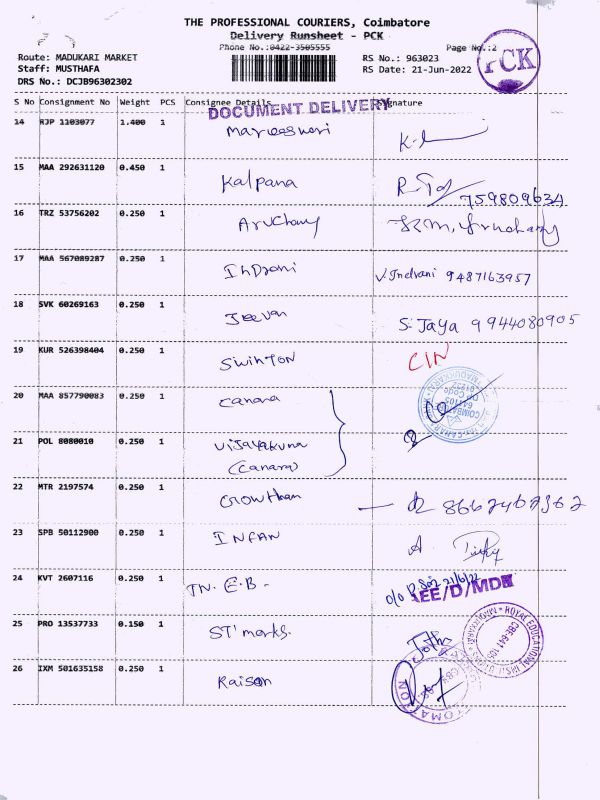 THE PROFESSIONAL COURIERS, Coimbatore
Delivery Runsheet - PCK
Phone No.:0422-3505555
Page No.:2
PCK
Route: MADUKARI MARKET
Staff: MUSTHAFA
DRS No.: DCJB96302302
RS No.: 963023
RS Date: 21-Jun-2022
S No Consignment No Weight PCS Consignee Details Signature
DOCUMENT DELIVERY
14 RJP 1103077 1.400 1
15 MAA 292631120 0.450 1 Kalpana
759809634
16 TRZ 53756202 0.250 1 Aruchamy
17 MAA 567089287 0.250 1 Indrani V.Indrani 9487163957
18 SVK 60269163 0.250 1 Jeevan S. Jaya 9944080905
19 KUR 526398404 0.250 1 Swinton CIN
20 MAA 857790083 0.250 1 Canara
21 POL 8080010 0.250 1
(Canara)
22 MTR 2197574 0.250 1 Gowtham
23 SPB 50112900 0.250 1 INFAN
24 KVT 2607116 0.250 1 TN. E.B - 21/6/22
AEE/D/MDK
25 PRO 13537733 0.150 1 ST'marks.
26 IXM 501635158 0.250 1 Raison